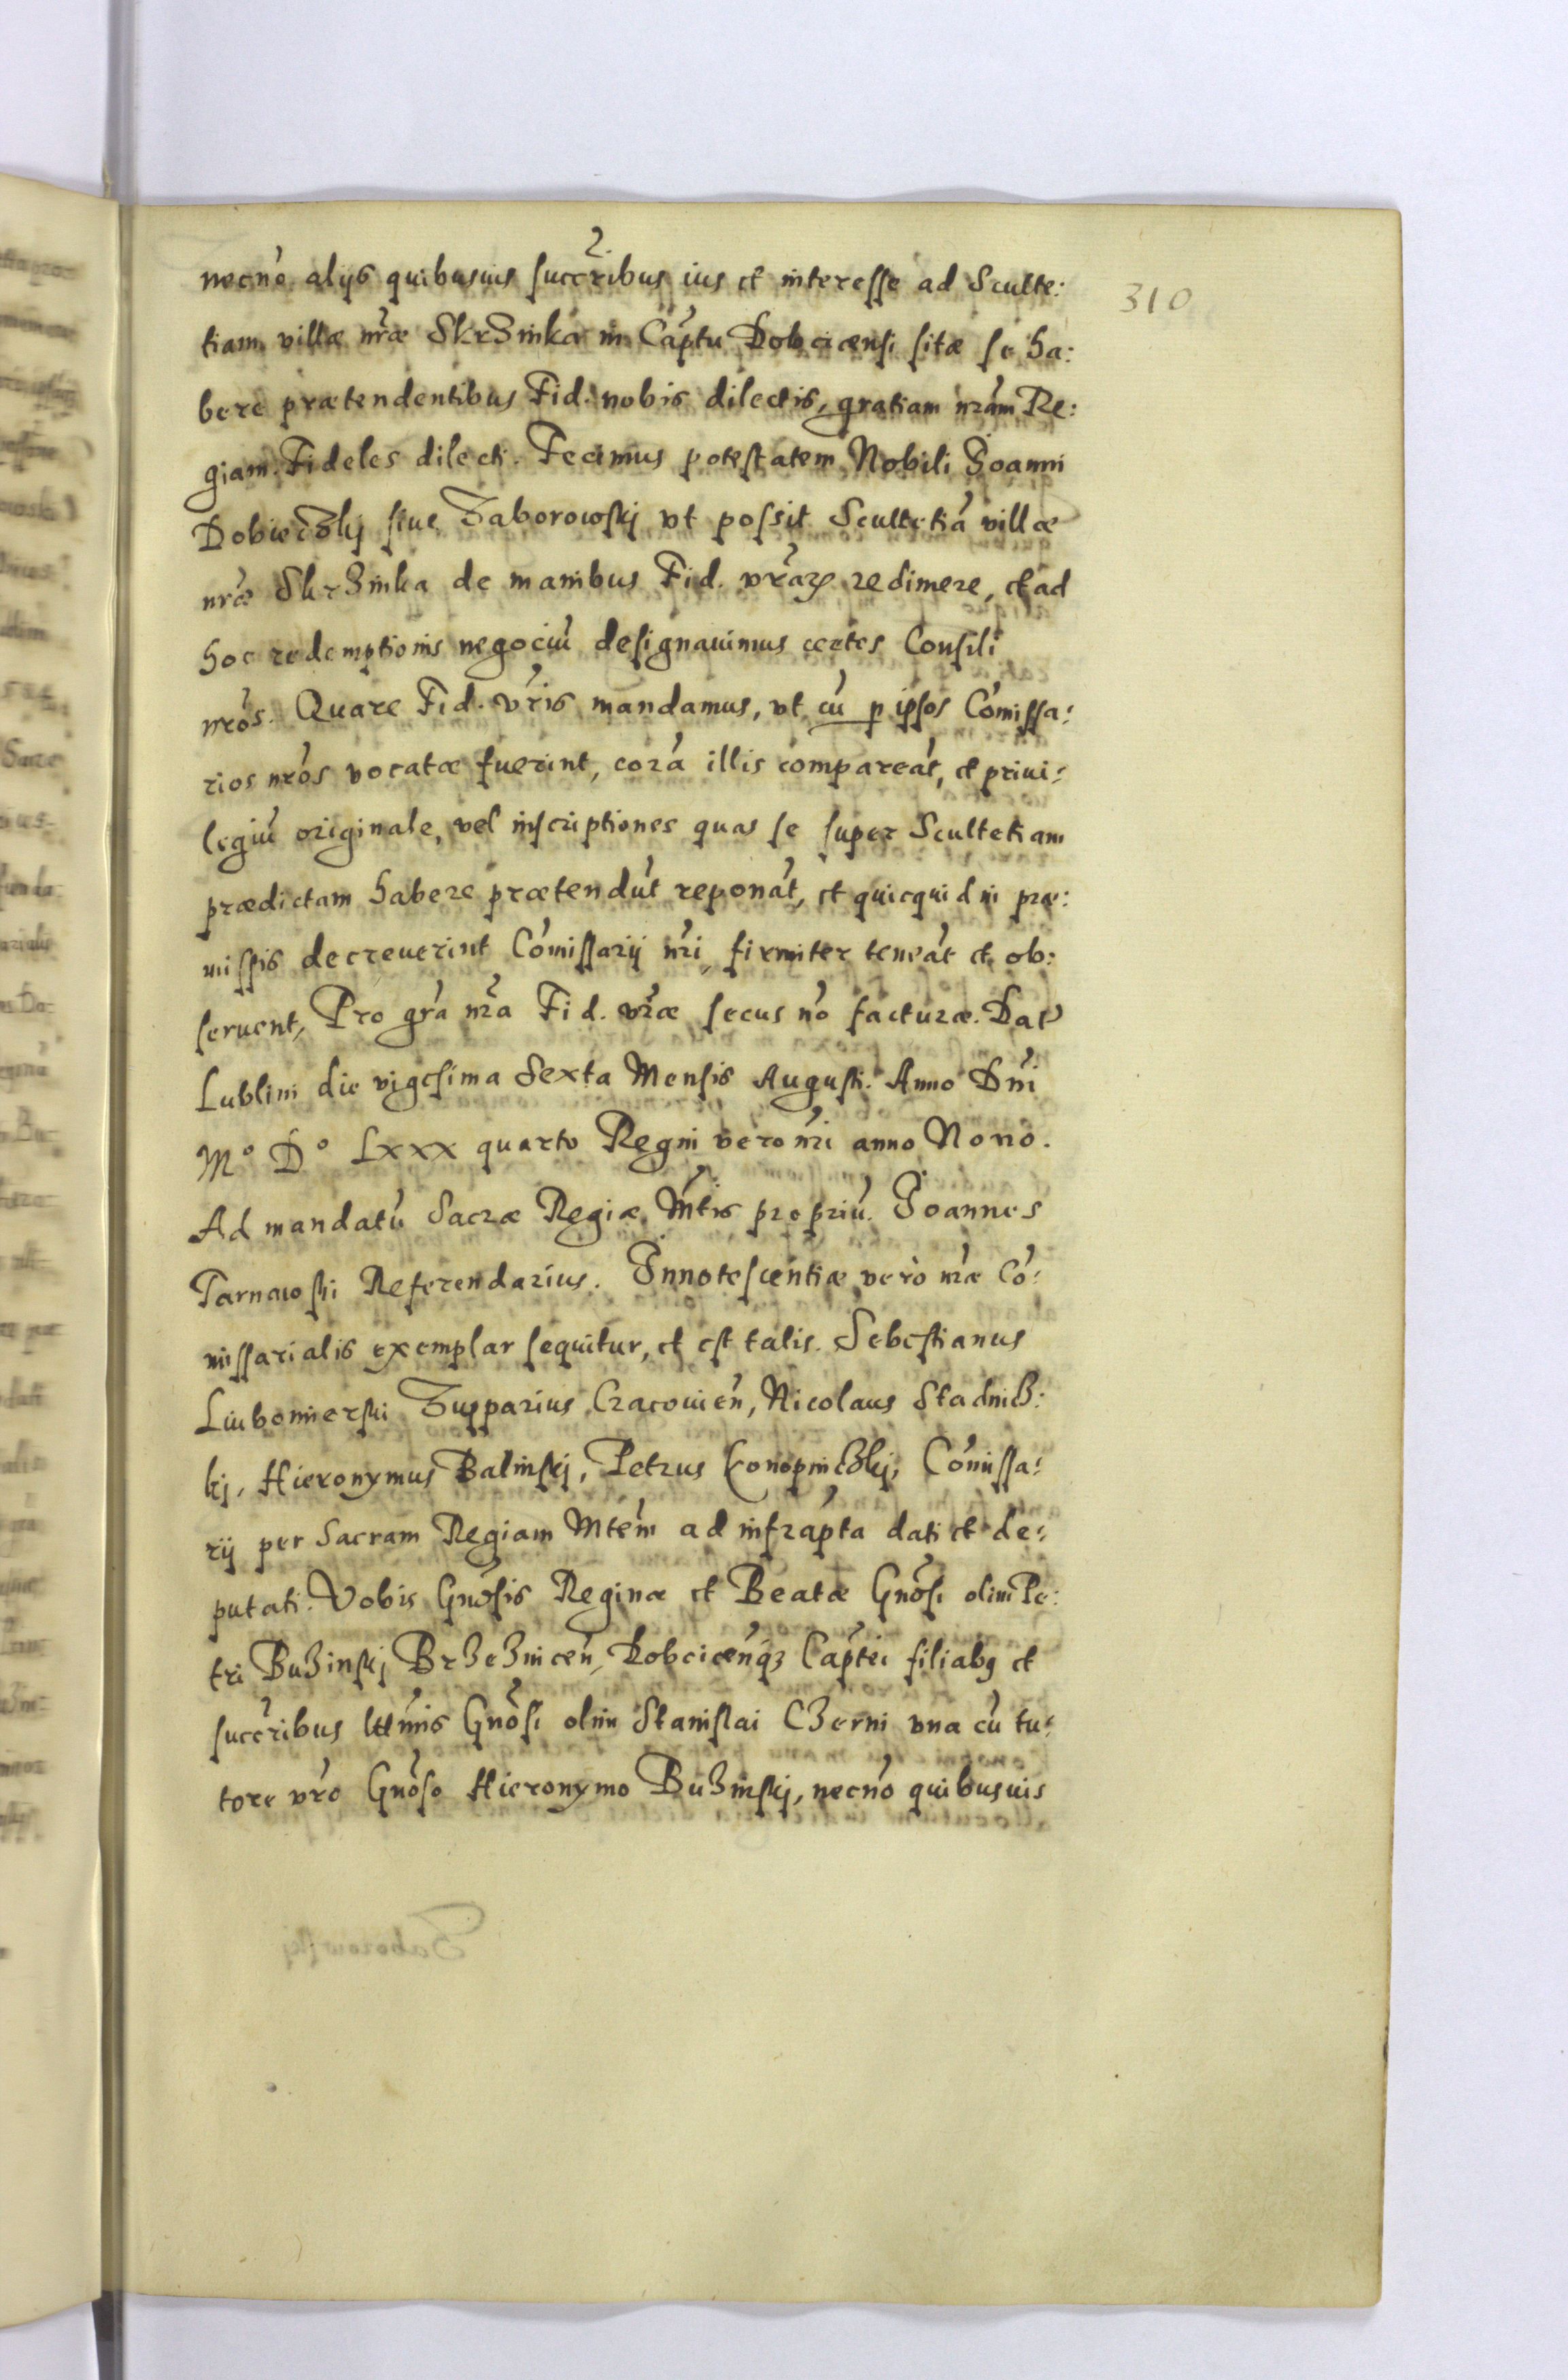 310
necnō alijs quibusuis succ̄ribus ius et interesse ad Sculte:
tiam villæ nr̄æ Skrzinka in Cap̄tu Dobcicensi sitæ se ha:
bere prætendentibus Fid. nobis dilectis, gratiam nr̄am Re:
giam. Fideles dilecti. Fecimus potestatem Nobili Joanni
Dobieczkij siue Zaborowskij vt possit Scultetiā villæ
nr̄æ Skrzinka de manibus Fid. vr̄aꝝ redimere, et ad
hoc redemptionis negociū designauimus certos Consil̄i
nr̄os. Quare Fid. vr̄is mandamus, vt cū p ipsos Cōmissa:
rios nr̄os vocatæ fuerint, corā illis compareāt, et priui:
legiū originale, vel inscriptiones quas se super Scultetiam
prædictam habere prætendūt reponāt, et quicquid in præ:
missis decreuerint Cōmissarij nr̄i, firmiter teneāt et ob:
seruent, Pro gr̄a nr̄a Fid. vr̄æ secus nō facturæ. Dat
Lublini die vigesima Sexta Mensis Augusti. Anno Dn̄i
Mº Dº Lxxx quarto Regni vero nr̄i anno Nono.
Ad mandatū Sacræ Regiæ Mt̄is propriū. Joannes
Tarnowski Referendarius. Innotescentiæ verò nr̄æ Cō:
missarialis exemplar sequitur, et est talis. Sebestianus
Liubomierski Zupparius Cracouien̄, Nicolaus Stadnicz:
kij, Hieronymus Balinskij, Petrus Konopniczkij, Cōmissa:
rij per Sacram Regiam Mtem̄ ad infrap̄ta dati et de:
putati. Vobis Gn̄osis Reginæ et Beatæ Gn̄osi olim Pe:
tri Buzinskij Brzeznicen̄, Dobcicen̄qꝫ Cap̄tei filiabꝯ et
succ̄ribus ltt̄imis Gn̄osi olim Stanislai Czerni vna cū tu:
tore vr̄o Gn̄oso Hieronymo Buzinskij, necnō quibusuis